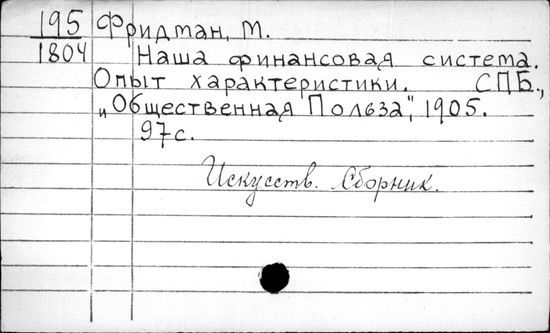 195 Фридман, М.
1804 Наша финансовая система.
Опыт характеристики. СПБ.,
„Общественная Польза", 1905.
97 с.
Искусств. Сборник.